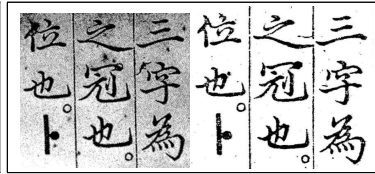 三字為
之冠也。
位也。卜
三字為
之冠也。
位也。卜